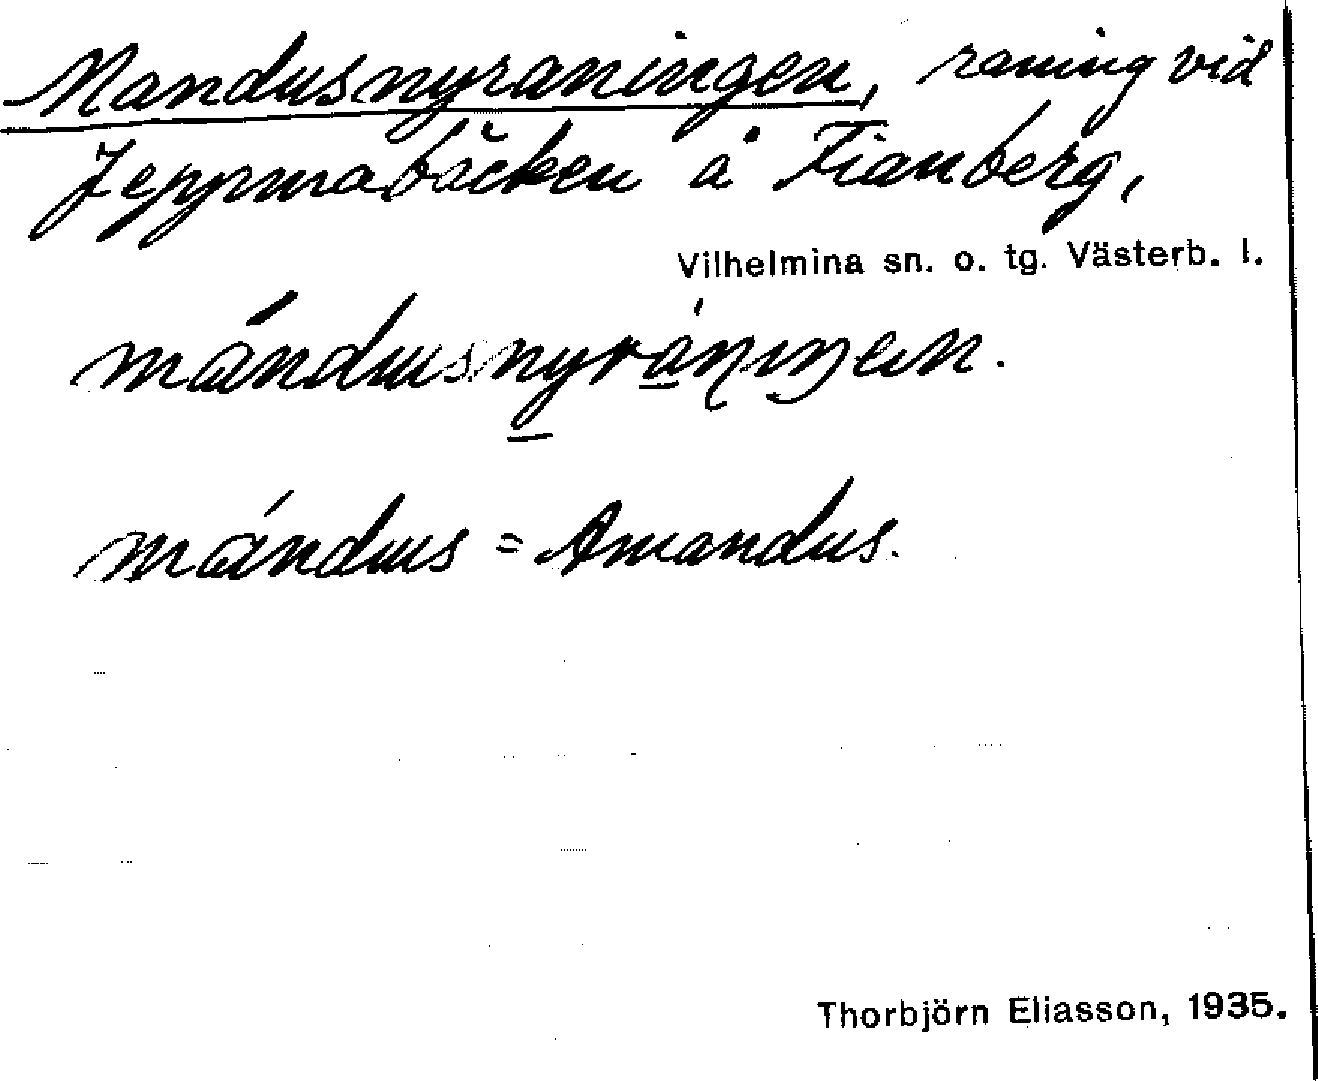 Mandusnyraningen, raning vid
Jeppmabäcken å Fianberg,
Vilhelmina sn. o. tg. Västerb. l.
mándusnyrániŋen.
mándus = Amandus.
Thorbjörn Eliasson, 1935.